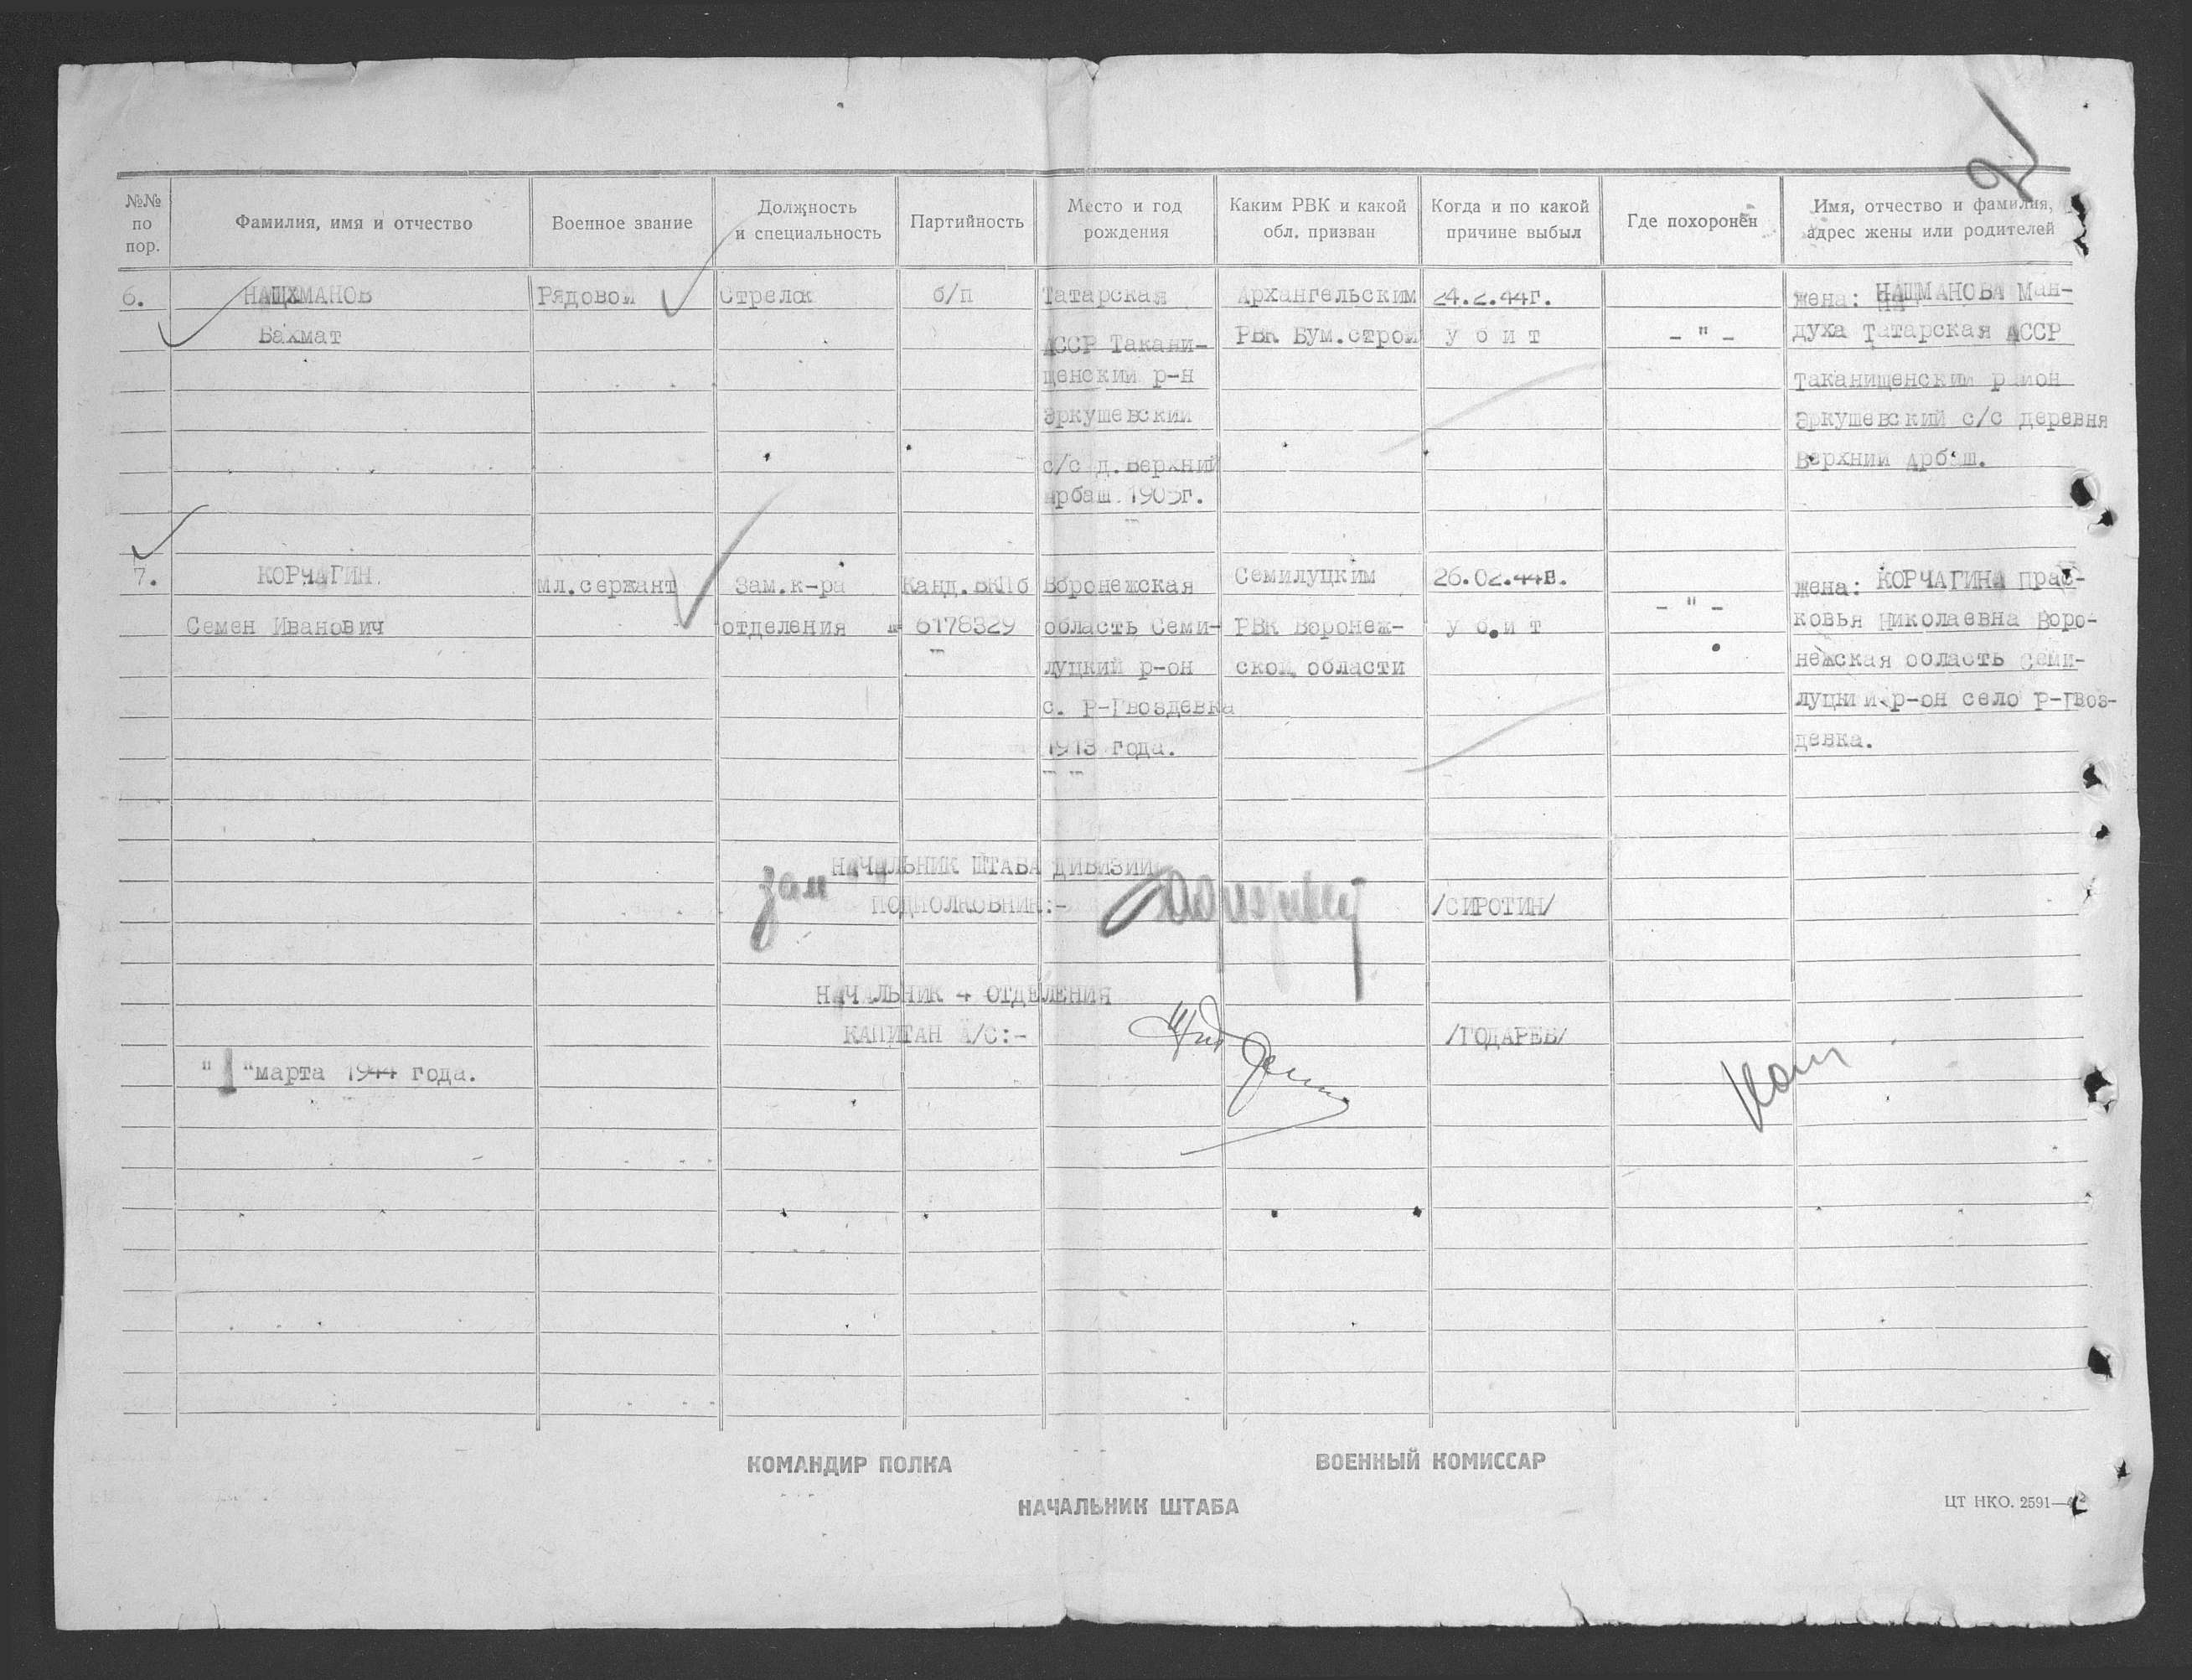 21
№№ по пор.
Фамилия, имя и отчество
Военное звание
Должность и специальность
Партийность
Место и год рождения
Каким РВК и какой обл. призван
Когда и по какой причине выбыл
Где похоронен
Имя, отчество и фамилия, адрес жены или родителей
6.
НАЩХМАНОВ
Бахмат
Рядовой
Стрелок
б/п
Татарская
АССР Такани-
щенский р-н
Эркушевский
с/с д.Верхний
Арбаш 1905г.
Архангельским
РВК Бум.строй
24.2.44г.
у б и т
- " -
жена: НАЩМАНОВА Ман-
духа Татарская АССР
Таканищенский район
Эркушевский с/с деревня
Верхний Арбаш.
7.
КОРЧАГИН
Семен Иванович
Мл.сержант
Зам.к-ра
отделения
Канд.ВКПб
№ 6178329
Воронежская
область Семи-
луцкий р-он
с. Р-Гвоздевка
1913 года.
Семилуцким
РВК Воронеж-
ской области
26.02.44г.
у б и т
- " -
жена: КОРЧАГИНА Прас-
ковья Николаевна Воро-
нежская область Семи-
луцкий р-он село Р-Гвоз-
девка.
НАЧАЛЬНИК ШТАБА ДИВИЗИИ
зам
ПОДПОЛКОВНИК:-
/СИРОТИН/
НАЧАЛЬНИК 4 ОТДЕЛЕНИЯ
КАПИТАН А/С:-
/ГОДАРЕВ/
" 1 "марта 1944 года.
КОМАНДИР ПОЛКА
ВОЕННЫЙ КОМИССАР
НАЧАЛЬНИК ШТАБА
ЦТ НКО. 2591—42